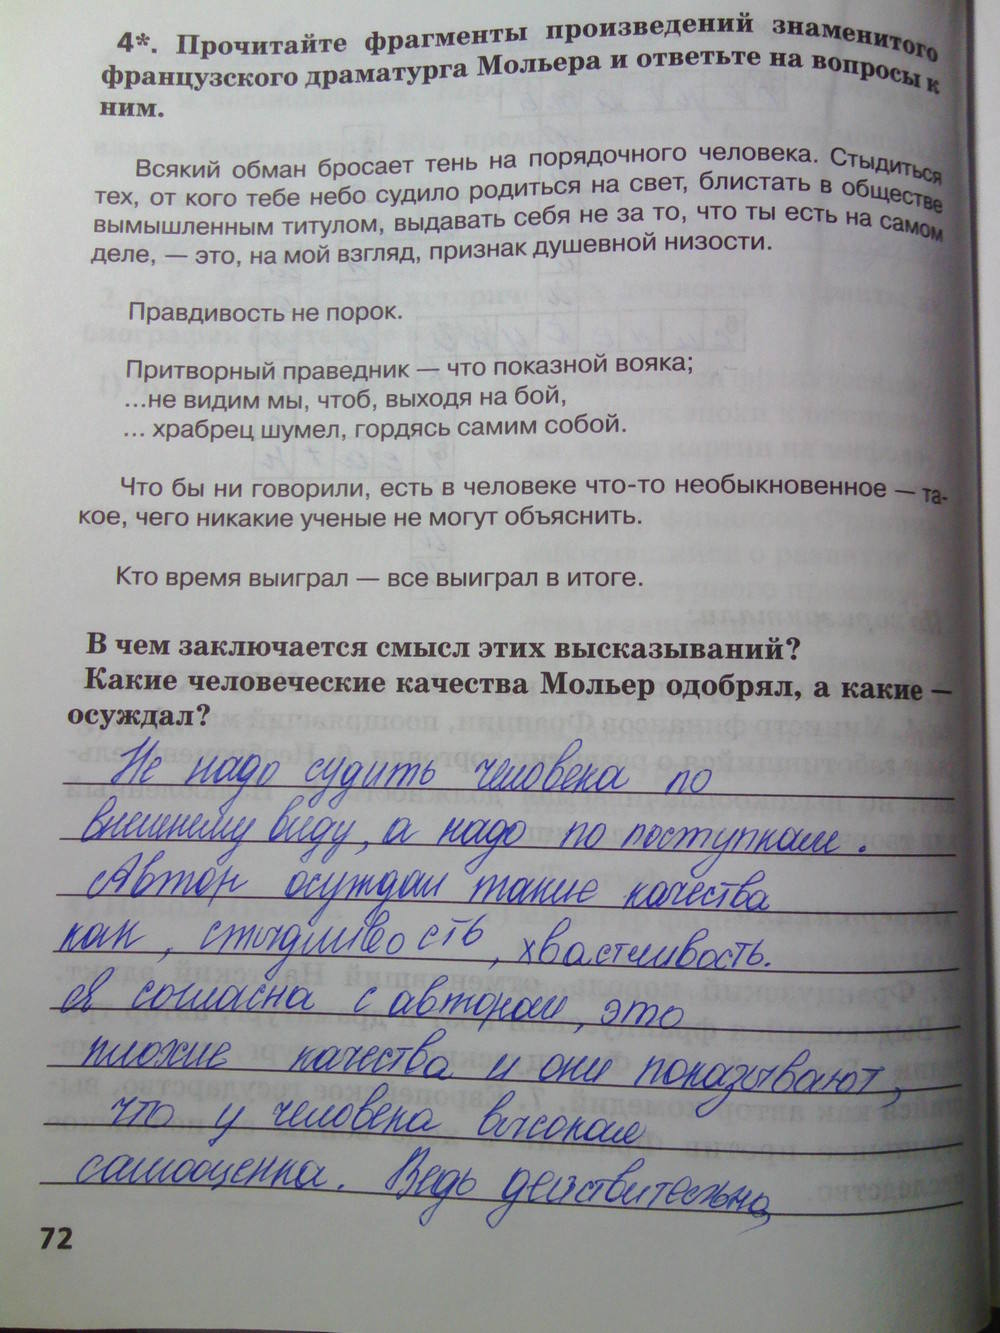 4*. Прочитайте фрагменты произведений знаменитого
французского драматурга Мольера и ответьте на вопросы к
ним.
Всякий обман бросает тень на порядочного человека. Стыдиться
тех, от кого тебе небо судило родиться на свет, блистать в обществе
вымышленным титулом, выдавать себя не за то, что ты есть на самом
деле, — это, на мой взгляд, признак душевной низости.
Правдивость не порок.
Притворный праведник — что показной вояка;
...не видим мы, чтоб, выходя на бой,
... храбрец шумел, гордясь самим собой.
Что бы ни говорили, есть в человеке что-то необыкновенное — та-
кое, чего никакие ученые не могут объяснить.
Кто время выиграл — все выиграл в итоге.
В чем заключается смысл этих высказываний?
Какие человеческие качества Мольер одобрял, а какие —
осуждал?
Не надо судить человека по
внешнему виду, а надо по поступкам.
Автор осуждал такие качества
как, стыдливость, хвастливость.
Я согласна с автором, это
плохие качества и они показывают,
что у человека высокая
самооценка. Ведь действительно,
72